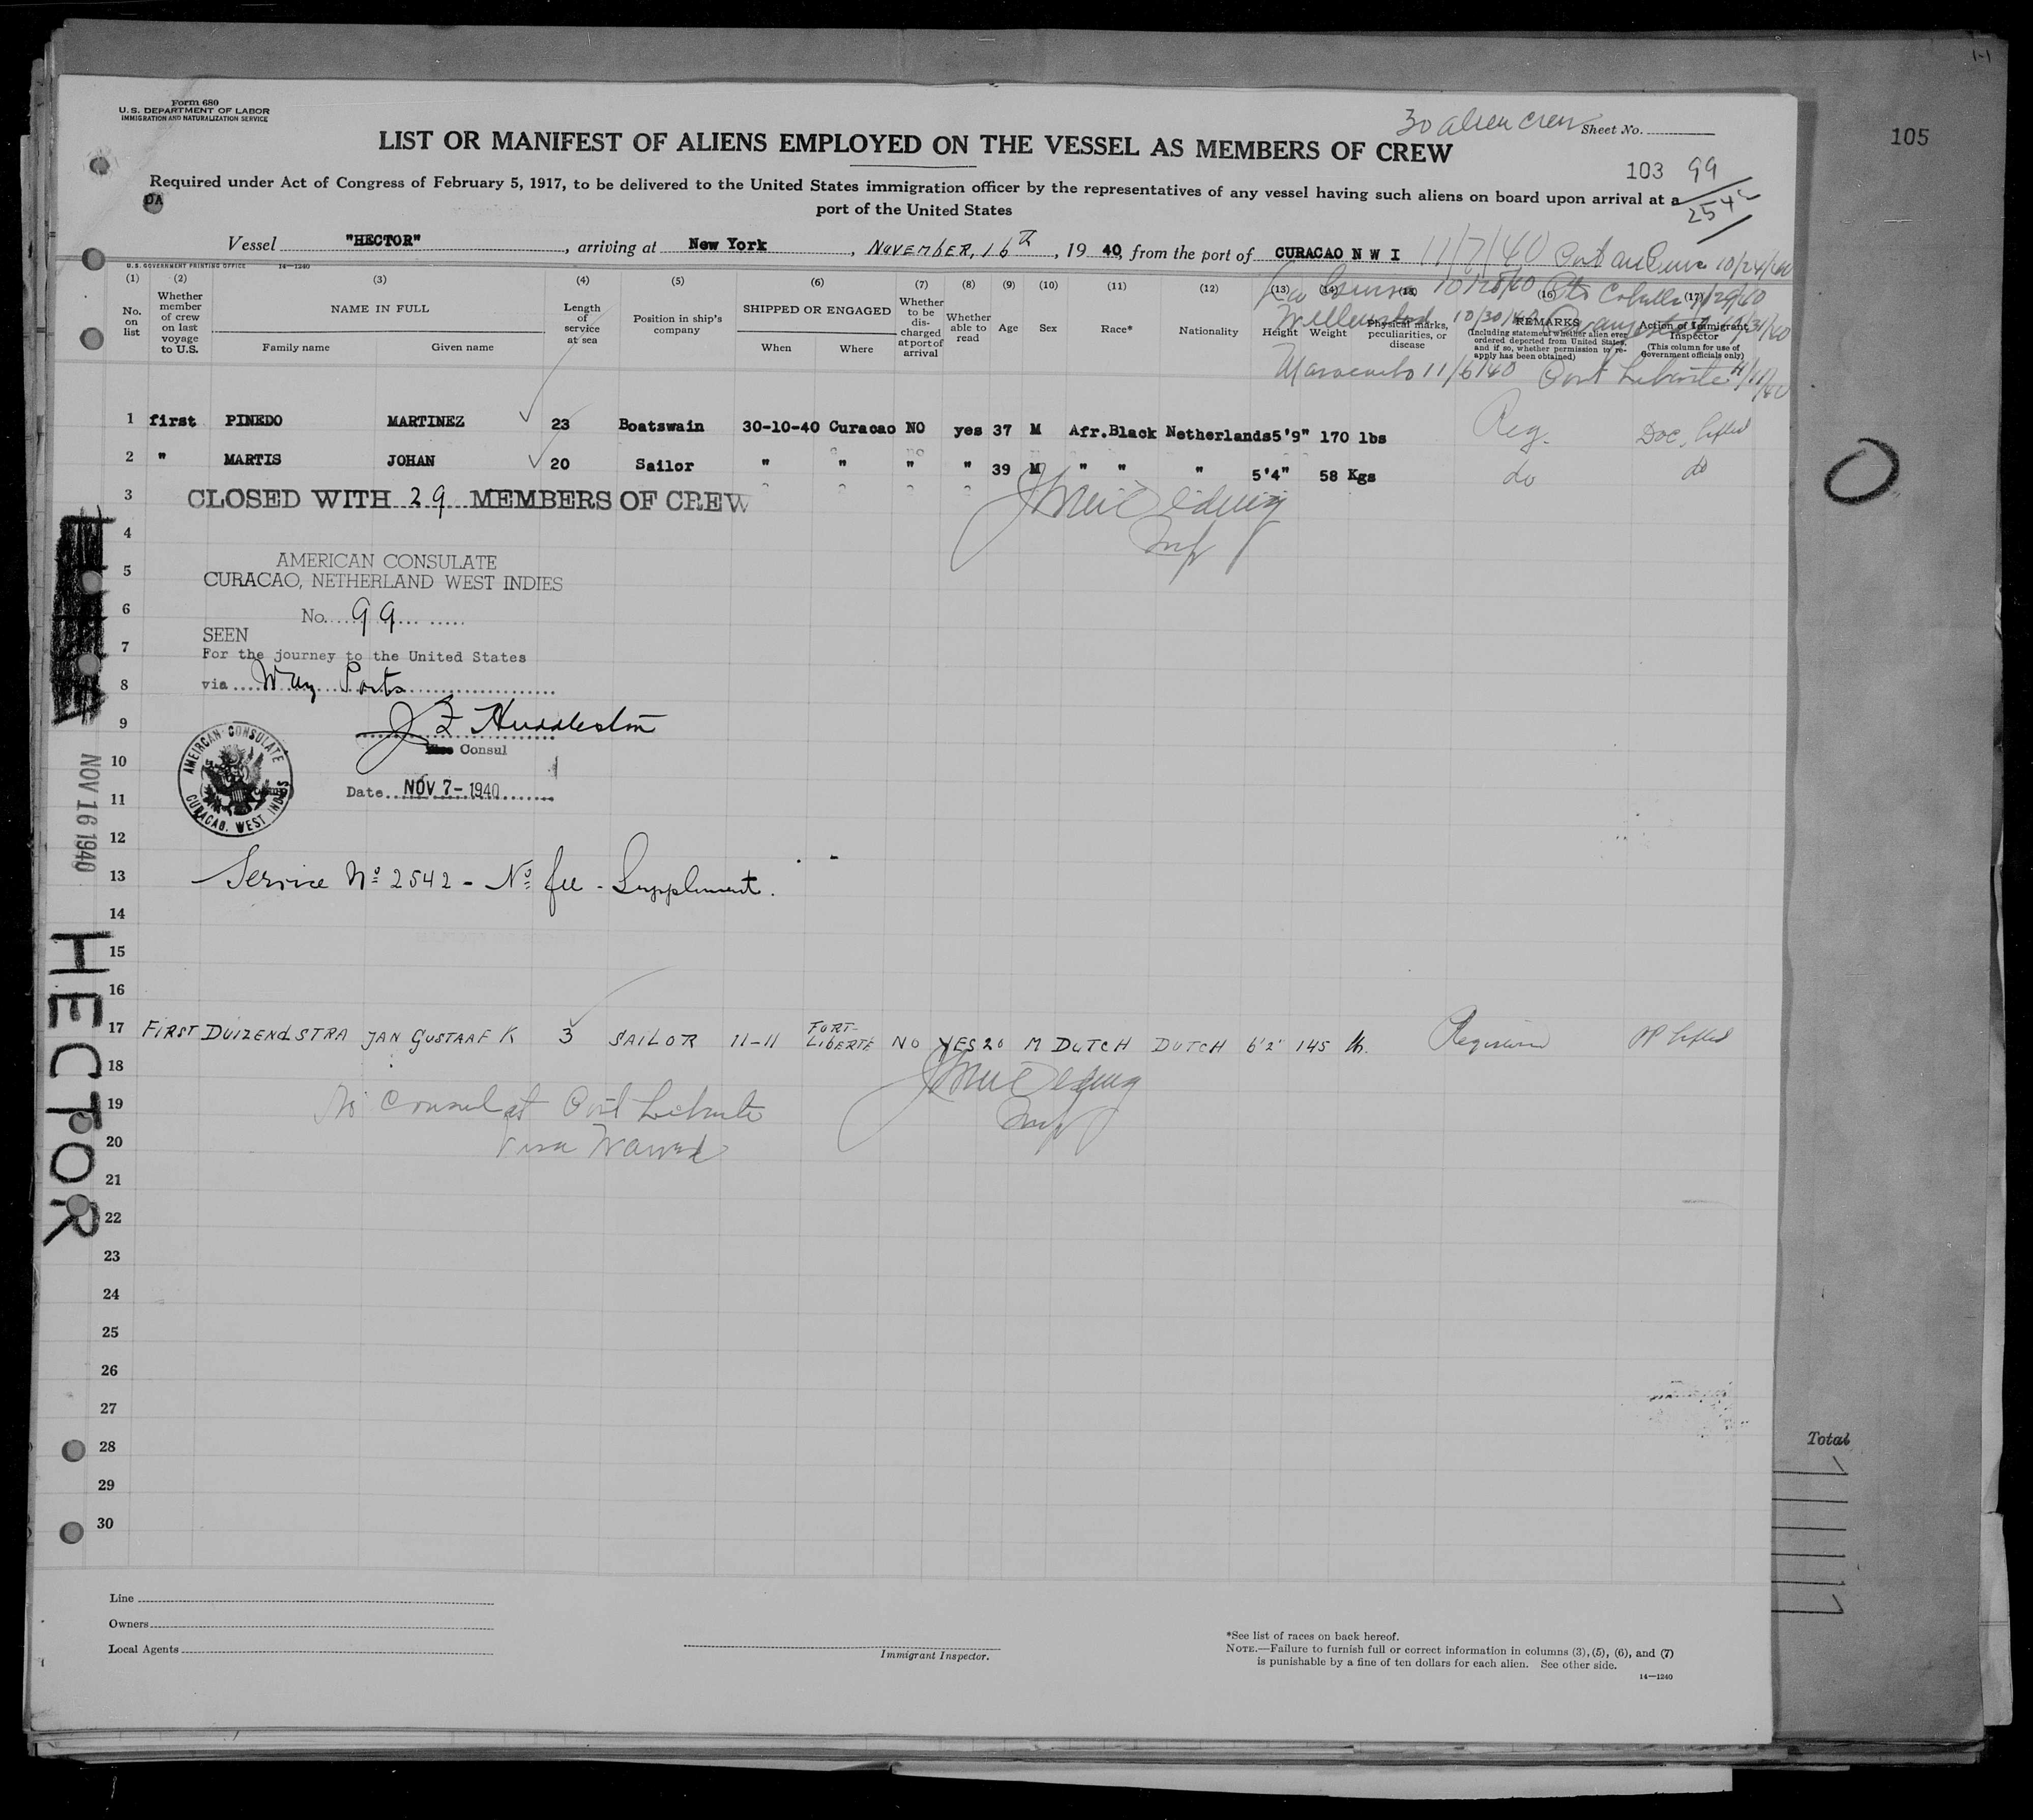 Form 680
U. S. DEPARTMENT OF LABOR
IMMIGRATION AND NATURALIZATION SERVICE
30 alien crew Sheet No.
105
LIST OR MANIFEST OF ALIENS EMPLOYED ON THE VESSEL AS MEMBERS OF CREW
103 99
2542
Required under Act of Congress of February 5, 1917, to be delivered to the United States immigration officer by the representatives of any vessel having such aliens on board upon arrival at a
port of the United States
DA
Vessel "HECTOR", arriving at New York, NOVEMBER, 16th, 19 40, from the port of CURACAO N W I 11/7/40
10/24/40
U. S. GOVERNMENT PRINTING OFFICE 14—1240
La Guaira 10/28/40 Pto Cabello 10/29/40
Willemstad 10/30/40
Maracaibo 11/6/40 Fort Liberte 11/11/40
(1) No. on list
(2) Whether member of crew on last voyage to U.S.
(3) NAME IN FULL
Family name Given name
(4) Length of service at sea
(5) Position in ship's company
(6) SHIPPED OR ENGAGED
When Where
(7) Whether to be discharged at port of arrival
(8) Whether able to read
(9) Age
(10) Sex
(11) Race*
(12) Nationality
(13) Height
(14) Weight
(15) Physical marks, peculiarities, or disease
(16) REMARKS
(Including statement whether alien ever ordered deported from United States, and if so, whether permission to reapply has been obtained)
(17) Action of Immigrant Inspector
(This column for use of Government officials only)
1 first PINEDO MARTINEZ 23 Boatswain 30-10-40 Curacao NO yes 37 M Afr.Black Netherlands 5'9" 170 lbs Reg. Doc. lifted
2 " MARTIS JOHAN 20 Sailor " " " " 39 M " " " 5'4" 58 Kgs do do
3 CLOSED WITH 29 MEMBERS OF CREW
4
AMERICAN CONSULATE
5 CURACAO, NETHERLAND WEST INDIES
6 No. 99
SEEN
7 For the journey to the United States
8 via Way Ports
9 J F Huddleston
Consul
10
AMERICAN CONSULATE CURACAO, WEST INDIES
Date NOV 7- 1940
11
12
13 Service Nº 2542 - Nº fee - Supplement.
14
15
16
17 FIRST DUIZENDSTRA JAN GUSTAAF K 3 SAILOR 11-11 FORT-LIBERTÉ NO YES 20 M DUTCH DUTCH 6'2" 145 lb. PP lifted
18
19 No Consul at Fort Liberte
20 Visa Waived
21
22
23
24
25
26
27
28
29
30
NOV 16 1940
HECTOR
Total
Line
Owners
Local Agents
Immigrant Inspector.
*See list of races on back hereof.
NOTE.—Failure to furnish full or correct information in columns (3), (5), (6), and (7)
is punishable by a fine of ten dollars for each alien. See other side.
14—1240